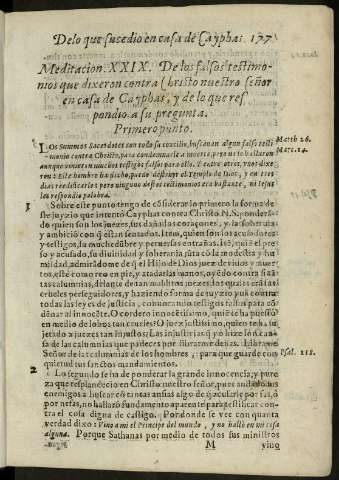 De lo que sucedio en casa de Cayphas. 177
Meditacion. XXIX. De los falsos testimo-
nios que dixeron contra Christo nuestro señor
en casa de Cayphas, y de lo que res
pondio a su pregunta.
Primero punto.
Los Summos Sacerdotes con todo su concilio, buscauan algun falso testi-
monio contra Christo, para condennarle a muerte, y no le hallaron
aunque vinieron muchos testigos falsos para ello. Y entre otros, dos dixe
ron: Este hombre ha dicho, puedo destruyr el Templo de Dios, y en tres
dias reedificarle: pero ninguno destos testimonios era bastante, ni Iesus
les respondio palabra.
Math 26.
Marc. 14.
1 Sobre este punto tengo de cõsiderar lo primero la forma de
ste juyzio que intentó Cayphas contra Christo. N. S. ponderãn
do quien son los juezes, sus dañados coraçones, y la soberuia
y ambicion con q̃ estan sentados. Iten, quien son los acusadores
y testigos, la muchedũbre y peruersas entrañas. Ité, quiē el pre
so y acusado, su diuinidad y soberania jũta cõ la modestia y hu
mildad, admirãdome de q̃ el Hijo de Dios juez de viuos y muer
tos, esté como reo en pie, y atadas las manos, oyẽdo contra si tã
tas calumnias, delante de tan maluados juezes, los quales erã tã
crueles perseguidores, y haziendo forma de juyzio yuã contra
todas las leyes de justicia, conuocando testigos falsos para cõ
denar al innocẽte. O cordero innocẽtissimo, quiẽ te ha puesto
en medio de lobos tan crueles? O juez justissimo, quien te ha su
jetado a juezes tan injustos? Las injusticias q̃ yo hize sõ la cau
sa de las calumnias que padeces por librarme de ellas. Librame
Señor de las calumnias de los hombres, para que guarde con
quietud tus sanctos mandamientos.
Psal. 118.
2 Lo segundo se ha de ponderar la grande innocencia, y pure
za que resplandecio en Christo nuestro señor, pues andando sus
enemigos a buscar cõ tantas ansias algo de q̃ acusarle por fas, ó
por nefas, no hallarõ fundamento aparente para testificar con
tra el cosa digna de castigo. Por donde se vee con quanta
verdad dixo: Vino a mi el Principe del mundo, y no halló en mi cosa
alguna. Porque Sathanas por medio de todos sus ministros
M
vino